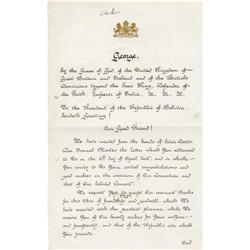 George,
By the Grace of God, of the United Kingdom of
Great Britain and Ireland and of the British
Dominions beyond the Seas King, Defender of
the Faith, Emperor of India, &c. &c. &c.
To the President of the Republic of Bolivia,
Sendeth Greeting!
Our Good Friend!
We have received from the hands of Señor Doctor
Don Ismael Montes the letter which you addressed
to Us on the of April last, and in which
You convey to Us Your cordial congratulations and
good wishes on the occasion of Our Coronation and
that of Our beloved Consort.
We request You to accept Our warmest thanks
for this token of friendship and goodwill, which We
have received with the greatest pleasure, while We
assure You of Our best wishes for Your welfare
and prosperity, and that of the Republic over which
You preside.
And